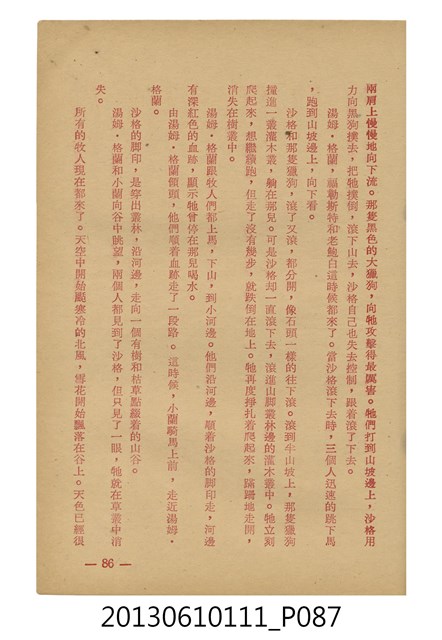 兩肩上慢慢地向下流。那隻黑色的大獵狗，向牠攻擊得最厲害。牠們打到山坡邊上，沙格用
力向黑狗撲去，把牠撲倒，滾下山去，沙格自己也失去控制，跟着滾了下去。
湯姆·格蘭，福勒斯特和老鮑白這時候都來了。當沙格滾下去時，三個人迅速的跳下馬
，跑到山坡邊上，向下看。
沙格和那隻獵狗，滾了又滾，都分開，像石頭一樣的往下滾。滾到半山坡上，那隻獵狗
撞進一叢灌木叢，躺在那兒。可是沙格却一直滾下去，滾進山脚叢林邊的灌木叢中。牠立刻
爬起來，想繼續跑，但走了沒有幾步，就跌倒在地上。牠再度掙扎着爬起來，蹣跚地走開，
消失在樹叢中。
湯姆·格蘭跟牧人們都上馬，下山，到小河邊。他們沿河邊，順着沙格的脚印走，河邊
有深紅色的血跡，顯示牠曾停在那兒喝水。
由湯姆·格蘭領頭，他們順着血跡走了一段路。這時候，小蘭騎馬上前，走近湯姆·
格蘭。
沙格的脚印，是穿出叢林，沿河邊，走向一個有樹和枯草點綴着的山谷。
湯姆·格蘭和小蘭向谷中眺望，兩個人都見到了沙格，但只見了一眼，牠就在草叢中消
失。
所有的牧人現在都來了。天空中開始颳寒冷的北風，雪花開始飄落在谷上。天色已經很
— 86 —
20130610111_P087